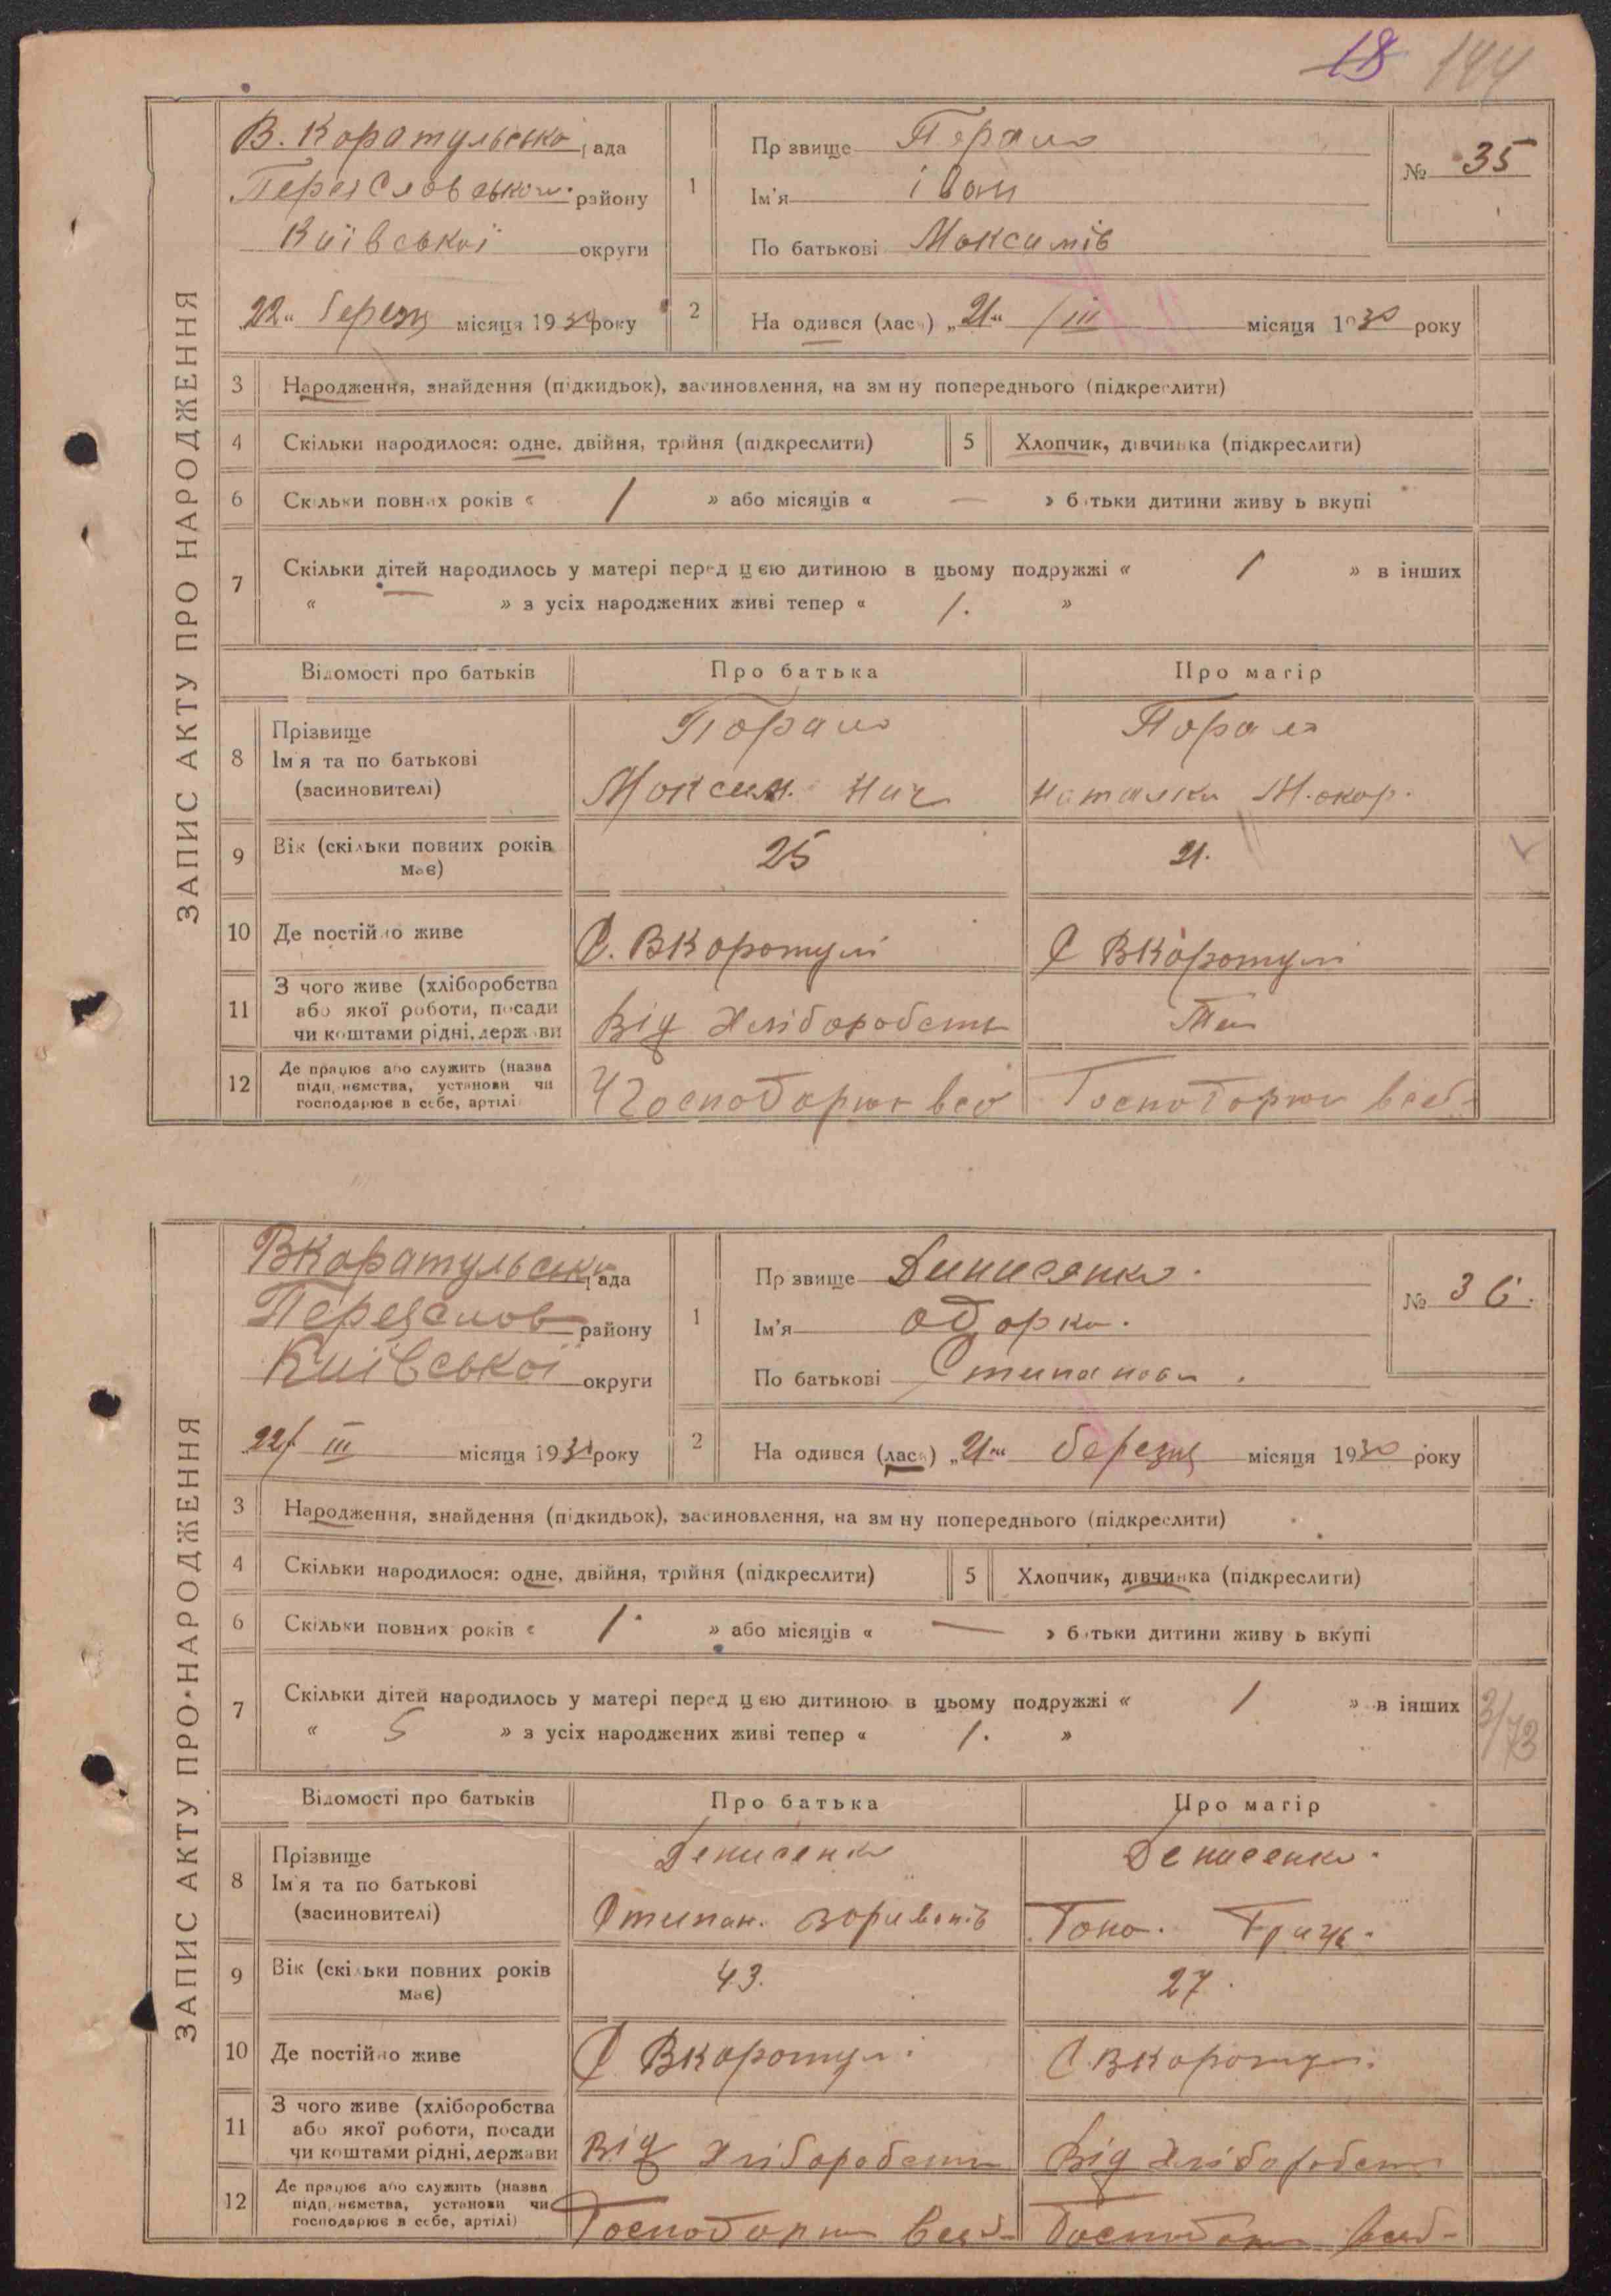 18 144
ЗАПИС АКТУ ПРО НАРОДЖЕННЯ
В. Каратульська рада
Переяславського району
Київської округи
22 березня місяця 1930 року
1
Прізвище
Ім'я Іван
По батькові Максимів
№ 35
2 Народився (лась) „21“ III місяця 1930 року
3 Народження, знайдення (підкидьок), засиновлення, на зміну попереднього (підкреслити)
4 Скільки народилося: одне, двійня, трійня (підкреслити) 5 Хлопчик, дівчинка (підкреслити)
6 Скільки повних років « 1 » або місяців « — » батьки дитини живуть вкупі
7 Скільки дітей народилось у матері перед цією дитиною в цьому подружжі « 1 » в інших
« — » з усіх народжених живі тепер « 1. »
Відомості про батьків Про батька Про матір
8 Прізвище
Ім'я та по батькові
(засиновителі)
Максим. Нич
Наталка Макар.
9 Вік (скільки повних років має) 25 21.
10 Де постійно живе С. ВКаратулі С ВКаратулі
11 З чого живе (хліборобства
або якої роботи, посади
чи коштами рідні, держави
Від Хліборобств
12 Де працює або служить (назва
підприємства, установи чи
господарює в себе, артілі)
ЗАПИС АКТУ ПРО НАРОДЖЕННЯ
ВКаратульська рада
Переяслов району
Київської округи
22/ III місяця 1930 року
1
Прізвище Динисенко.
Ім'я Одарка.
По батькові Стипанова.
№ 36.
2 Народився (лась) „21“ березня місяця 1930 року
3 Народження, знайдення (підкидьок), засиновлення, на зміну попереднього (підкреслити)
4 Скільки народилося: одне, двійня, трійня (підкреслити) 5 Хлопчик, дівчинка (підкреслити)
6 Скільки повних років « 1. » або місяців « — » батьки дитини живуть вкупі
7 Скільки дітей народилось у матері перед цією дитиною в цьому подружжі « 1 » в інших
« 5 » з усіх народжених живі тепер « 1. »
3/73
Відомості про батьків Про батька Про матір
8 Прізвище
Ім'я та по батькові
(засиновителі)
Денисенко Денисенко.
Стипан. Гриць.
9 Вік (скільки повних років має) 43. 27.
10 Де постійно живе С ВКаратулі С. ВКаратулі.
11 З чого живе (хліборобства
або якої роботи, посади
чи коштами рідні, держави
Від Хліборобств Від Хліборобств
12 Де працює або служить (назва
підприємства, установи чи
господарює в себе, артілі)